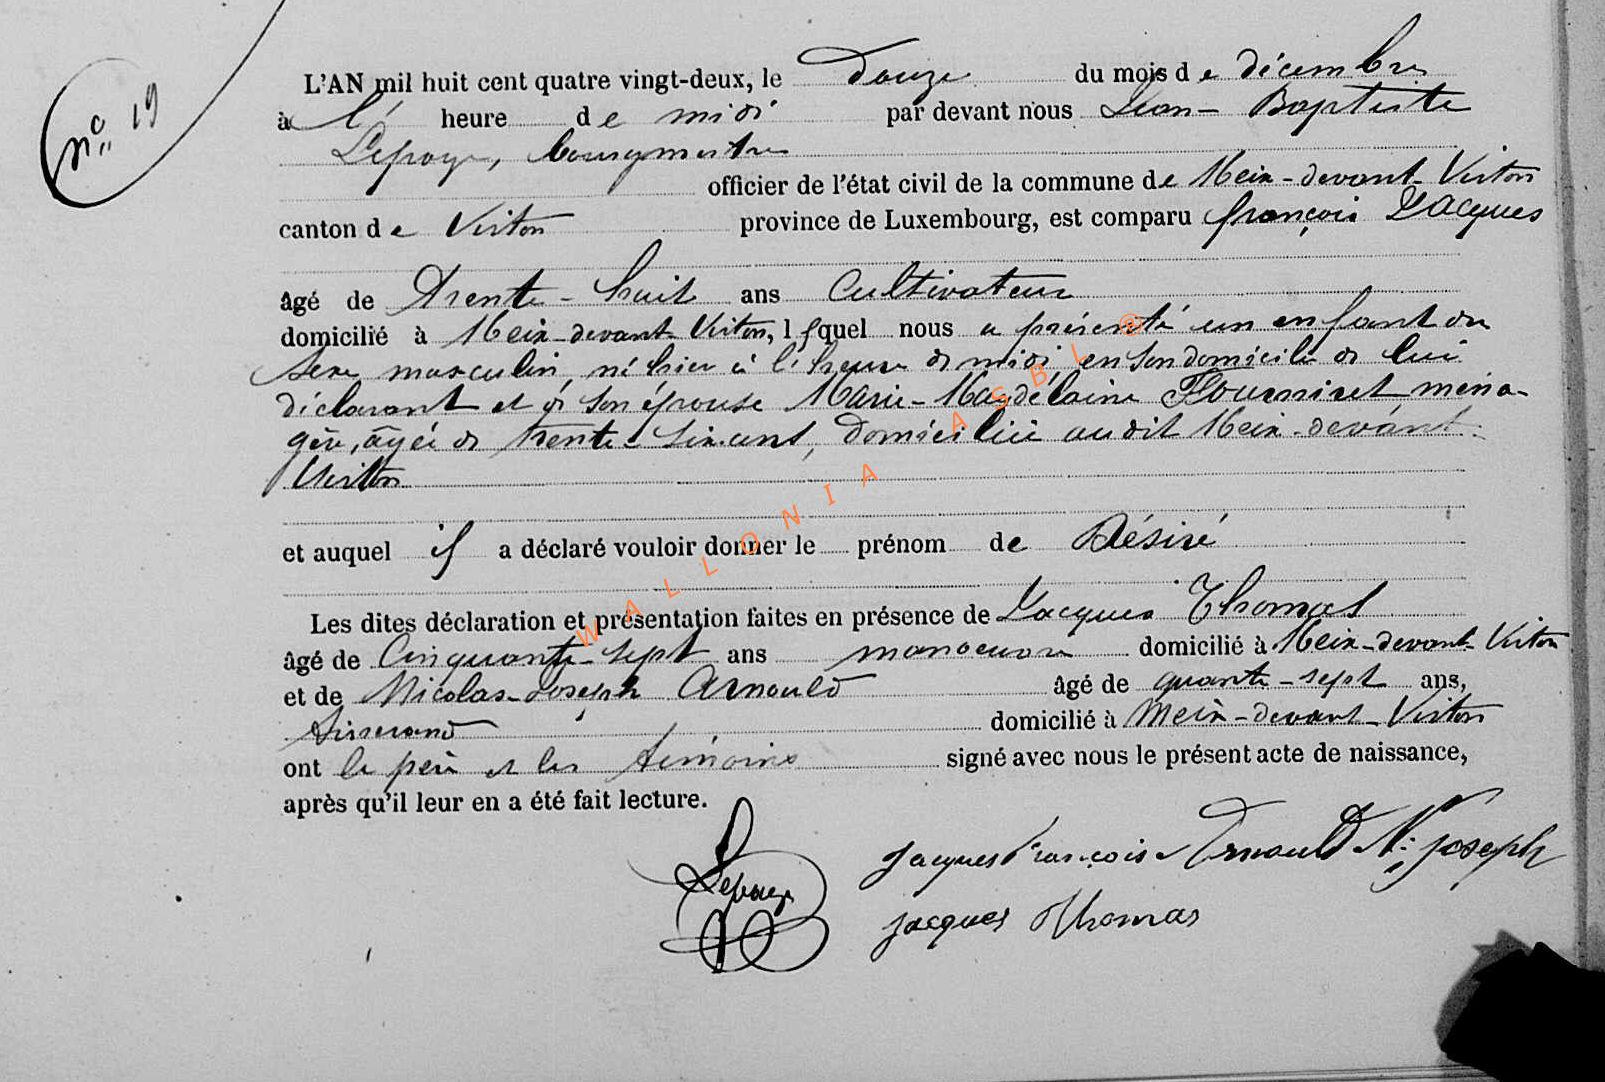 nº 19
L'AN mil huit cent quatre vingt-deux, le Douze du mois de décembre
à l' heure de midi par devant nous Jean-Baptiste
Lepage, bourgmestre
officier de l'état civil de la commune de Meix-devant-Virton
canton de Virton province de Luxembourg, est comparu françois Jacques
âgé de Trente-huit ans Cultivateur
domicilié à Meix-devant-Virton, lequel nous a présenté un enfant du
sexe masculin, né hier à l'heure de midi, en son domicile de lui
déclarant et de son épouse Marie-Magdelaine Flourniret ména-
gère, âgée de trente-six ans, domiciliée audit Meix-devant-
Virton
et auquel il a déclaré vouloir donner le prénom de Désiré
Les dites déclaration et présentation faites en présence de Jacques Thomas
âgé de Cinquante-sept ans manoeuvre domicilié à Meix-devant-Virton
et de Nicolas-Joseph Arnould âgé de quante-sept ans,
tisserand domicilié à Meix-devant-Virton
ont le père et les témoins signé avec nous le présent acte de naissance,
après qu'il leur en a été fait lecture.
Lepage Jacques françois Arnould N. Joseph
Jacques Thomas
WALLONIA ASBL ®